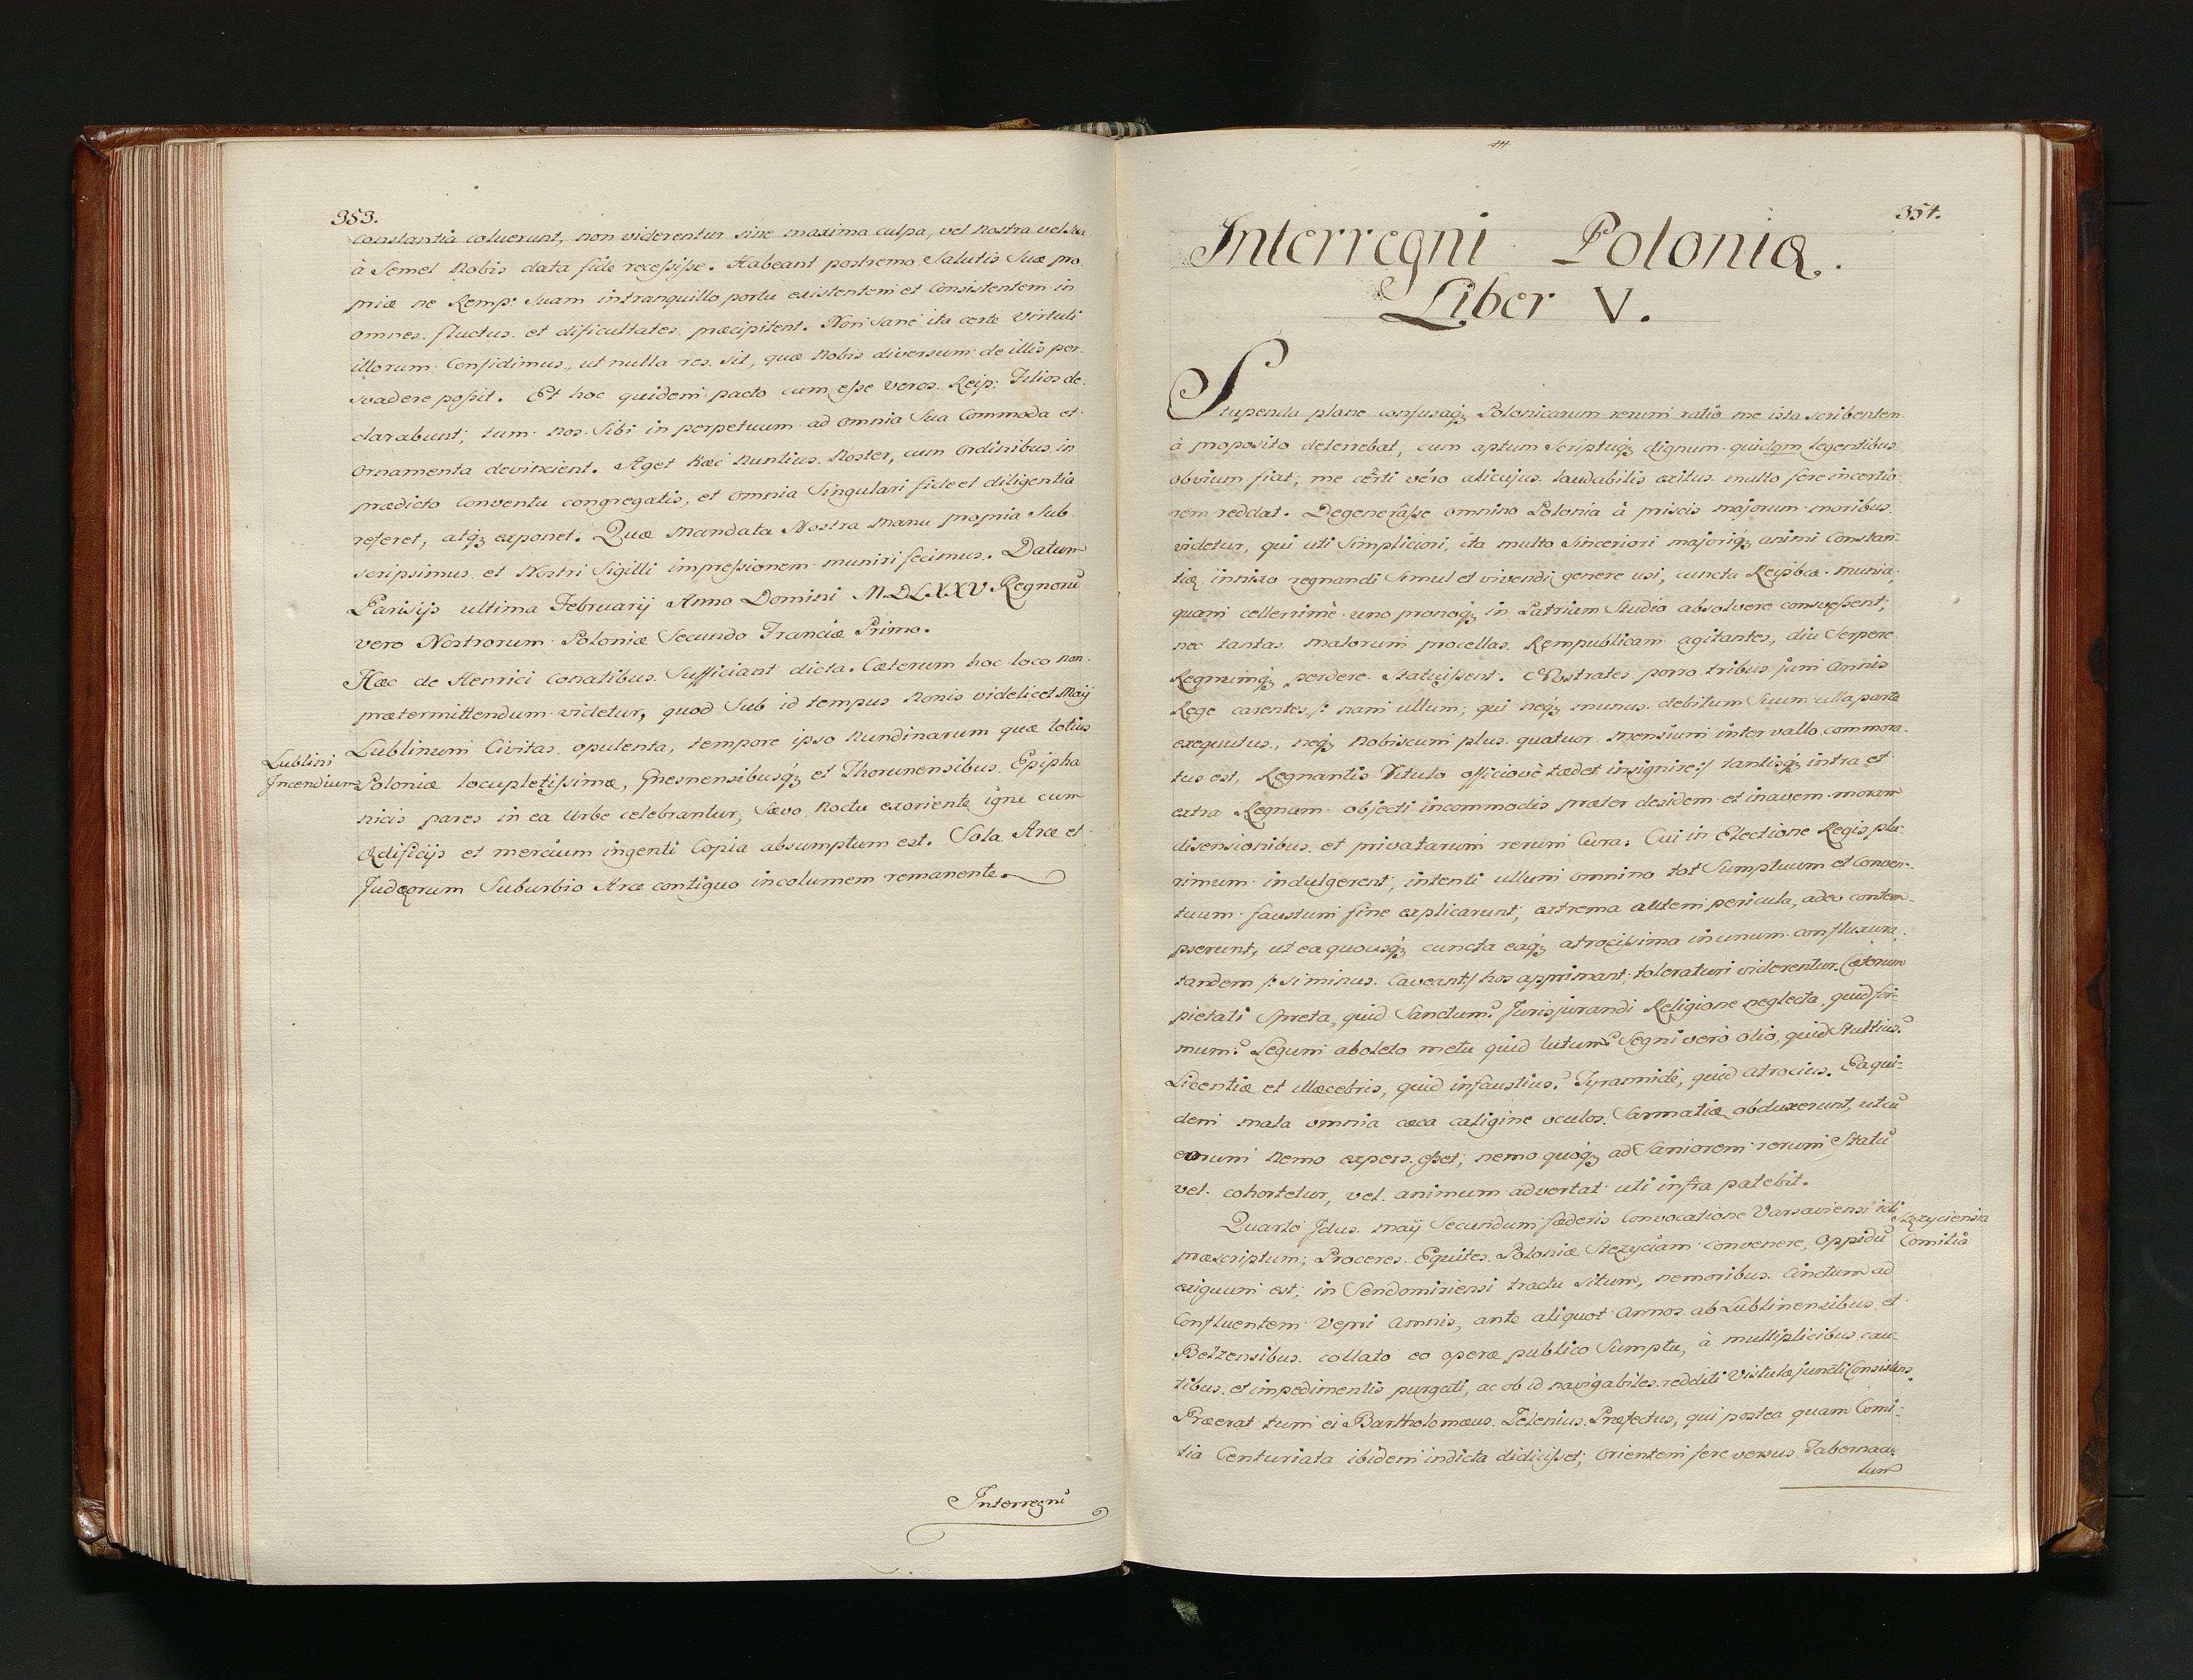 353.
constantia coluerunt, non viderentur sine maxima culpa, vel nostra vel sua
à Semel Nobis data fide recessisse. Habeant postremo Salutis Suæ pro
priæ ne Remp: Suam intranquillo portu existentem et Consistentem in
omnes fluctus et dificultates præcipitent. Non Sane ita certe Virtuti
illorum Confidimus, ut nulla res sit, quæ Nobis diversum de illis per
svadere possit. Et hoc quidem pacto cum esse veros Reip: Filios de
clarabunt; tum nos Sibi in perpetuum ad omnia Sua Commoda et
Ornamenta devincient. Aget hæc Nuntius Noster, cum Ordinibus in
prædicto Conventu congregatis, et omnia Singulari fide et diligentia
referet, atqꝫ exponet. Quæ Mandata Nostra Manu propria Sub
scripsimus et Nostri Sigilli impressionem muniri fecimus. Datum
Parisijs ultima Februarij Anno Domini M.DLXXV Regnorũ
vero Nostrorum Poloniæ Secundo Franciæ Primo.
Hæc de Henrici Conatibus Sufficiant dicta. Cæterum hoc loco non
prætermittendum videtur, quod Sub id tempus Nonis videlicet Maij
Lublinum Civitas opulenta, tempore ipso Nundinarum quæ totius
Lublini
Incendium
Poloniæ locupletissimæ, Gnesnensibusqꝫ et Thorunensibus Epipha
nicis pares in ea Urbe celebrantur, Sævo Noctu exoriente igne cum
Ædificijs et mercium ingenti Copia absumptum est. Sola Arce et
Judæorum Suburbio Arce contiguo incolumem remanente.
Interregni
354.
Interregni Poloniæ.
Liber V.
Stupenda plane confusaqꝫ Polonicarum rerum ratio me ista scribentem
à proposito deterrebat, cum aptum Scriptuqꝫ dignum quidqm Legentibus
obvium fiat; me cèrti véro alicujus laudabilis exitus multo fere incertio
rem reddat. Degenerâsse omnino Polonia à priscis majorum moribus
videtur, qui uti Simpliciori, ita multo Sinceriori majoriqꝫ animi Constan-
tiæ innixo regnandi Simul et vivendi genere usi, cuncta Reipbcæ munia
quam cellerrimè uno pronoqꝫ in Patriam Studio absolvere consvessent;
nec tantas malorum procellas Rempublicam agitantes, diu Serpere
Regnumqꝫ perdere Statuissent. Nostrates porro tribus jam Annis
Rege carentes /: nam ullum; qui neqꝫ munus debitum Suum ulla parte
exequutus, neqꝫ Nobiscum plus quatuor mensium inter vallo commora-
tus est, Regnantis Titulo officiovè tædet insignire :/ tantisqꝫ intra et
extra Regnum objecti incommodis præter desidem et inavem moram
disensionibus et privatarum rerum Cura: Cui in Electione Regis plu-
rimum indulgerent, intenti ullum omnino tot Sumptuum et Conven-
tuum faustum fine explicarunt; extrema autem pericula, adeo contem-
pserunt, ut ea quousqꝫ cuncta eaqꝫ atrocissima in unum confluxura
tandem /: si minus Caveant :/ hos opprimant; toleraturi viderentur. Cæterum
pietati Spreta, quid Sanctum? Jurisjurandi Religione neglecta, quid fir-
mum? Legum aboleto metu quid tutum? Segni verò otio, quid Stultius?
Licentiæ et illæcebris, quid infaustius? Tyrannide, quid atrocius. Ea qui-
dem mala omnia cæca caligine oculos Sarmatiæ obduxerunt, ut cũ
eorum Nemo expers esset, nemo quoqꝫ ad Saniorem rerum Statũ
vel cohortetur, vel animum advertat uti infra patebit.
Quarto Idus Maij Secundum fæderis Convocatione Varsaviensi icti
Stezyciensia
Comitia
præscriptum; Proceres Equites Poloniæ Stezyciam convenere, Oppidũ
exiguum est; in Sendomiriensi tractu situm, nemoribus Cinctum ad
Confluentem Vepri Amnis, ante aliquot Annos ab Lublinensibus et
Belzensibus collato eo operæ publico Sumptu, à multiplicibus cau-
tibus et impedimentis purgati, ac ob id navigabiles redditi Vistulæ juncti Consistens
Præerat tum ei Bartholomæus Zelenius Præfectus, qui postea quam Comi-
tia Centuriata ibidem indicta didicisset; Orientem fere versus Tabernacu-
lum